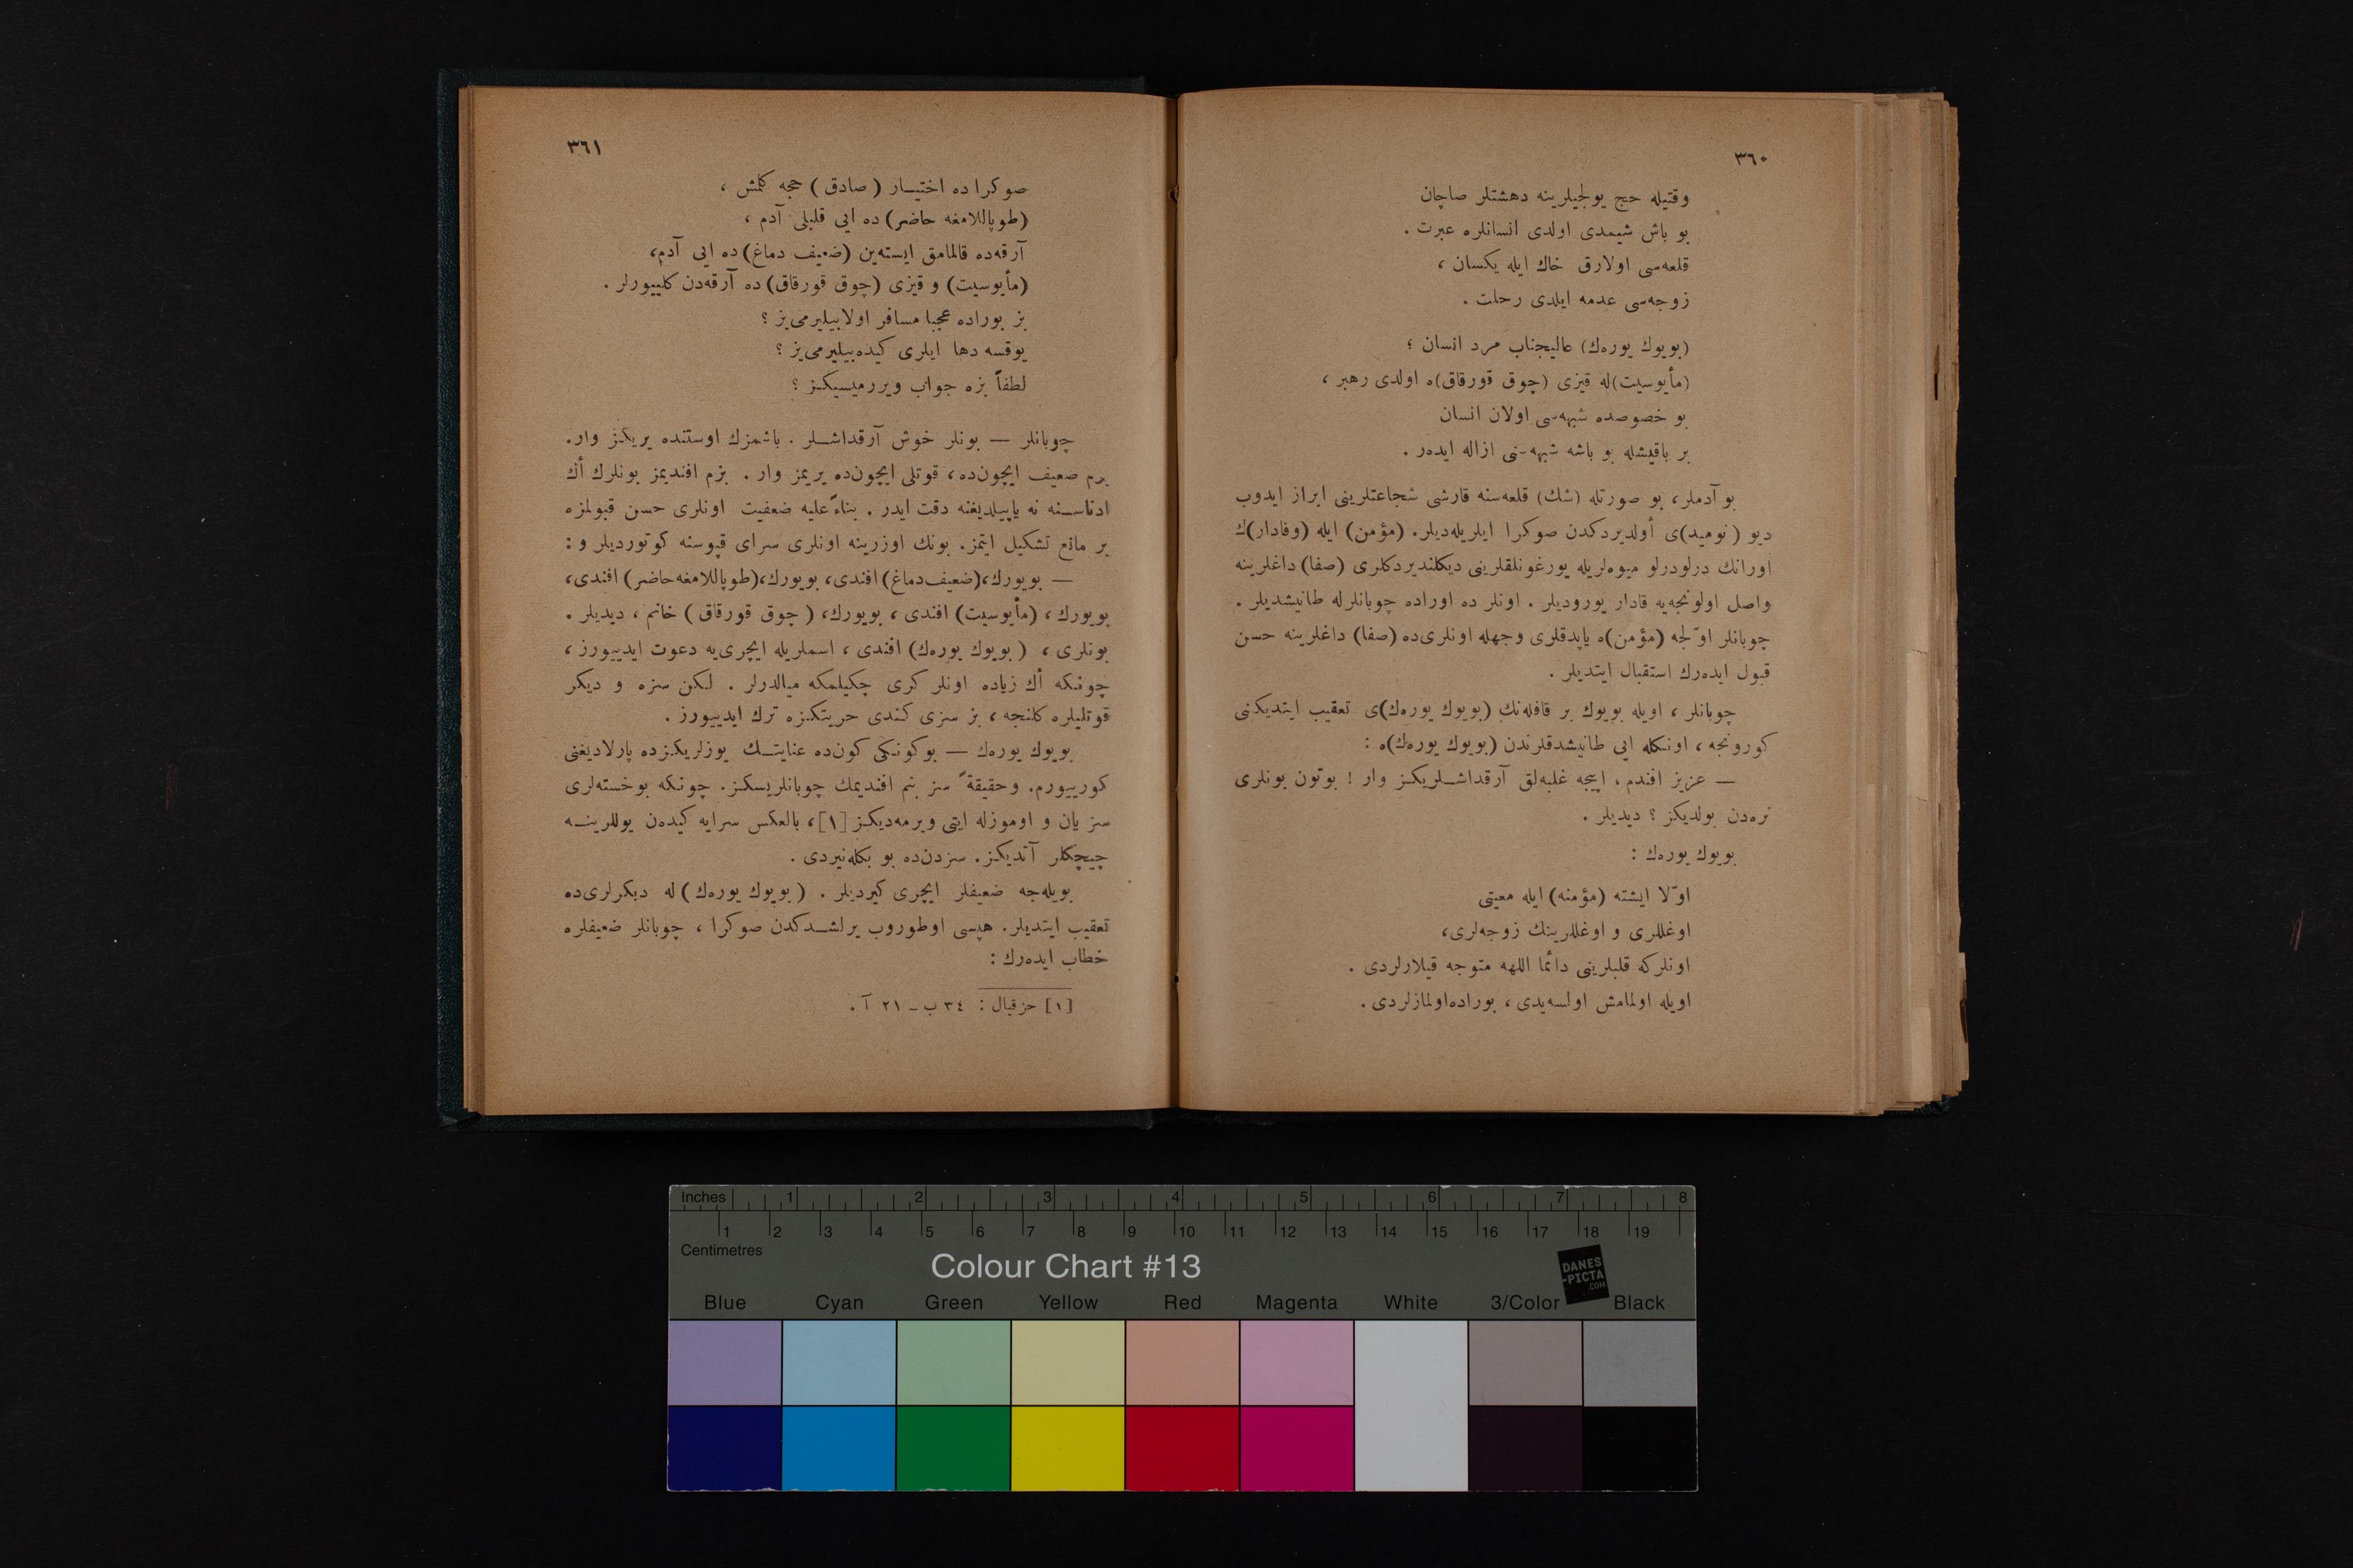 ٣٦٠
وقتيله حج يولجيلرينه دهشتلر صاچان
بو باش شيمدى اولدى انسانلره عبرت .
قلعه‌سى اولارق خاك ايله يكسان ،
زوجه‌سى عدمه ايلدى رحلت .
(بويوك يوره‌ك) عاليجناب مرد انسان ؛
(مأيوسيت)له قيزى (چوق قورقاق)ه اولدى رهبر ،
بو خصوصده شبهه‌سى اولان انسان
بر باقيشله بو باشه شبهه‌سنى ازاله ايده‌ر .
بو آدملر، بو صورتله (شك) قلعه‌سنه قارشى شجاعتلرينى ابراز ايدوب
ديو (نوميد)ى أولديردكدن صوكرا ايلريله‌ديلر. (مؤمن) ايله (وفادار)ك
اورانك درلودرلو ميوه‌لريله يورغونلقلرينى ديكلنديردكلرى (صفا) داغلرينه
واصل اولونجه‌يه قادار يوروديلر . اونلر ده اوراده چوبانلرله طانيشديلر .
چوبانلر اوّلجه (مؤمن)ه ياپدقلرى وجهله اونلرى‌ده (صفا) داغلرينه حسن
قبول ايده‌رك استقبال ايتديلر .
چوبانلر ، اويله بويوك بر قافله‌نك (بويوك يوره‌ك)ى تعقيب ايتديكنى
كورونجه ، اونكله ايى طانيشدقلرندن (بويوك يوره‌ك)ه :
— عزيز افندم ، اييجه غلبه‌لق آرقداشلريكز وار ! بوتون بونلرى
نره‌دن بولديكز ؟ ديديلر .
بويوك يوره‌ك :
اوّلا ايشته (مؤمنه) ايله معيتى
اوغللرى و اوغللرينك زوجه‌لرى،
اونلركه قلبلرينى دائما اللهه متوجه قيلارلردى .
اويله اولمامش اولسه‌يدى ، بوراده‌اولمازلردى .
٣٦١
صوكرا ده اختيار (صادق) حجه كلمش ،
(طوپاللامغه حاضر) ده ايى قلبلى آدم ،
آرقه‌ده قالمامق ايسته‌ين (ضعيف دماغ) ده ايى آدم،
(مأيوسيت) و قيزى (چوق قورقاق) ده آرقه‌دن كلييورلر .
بز بوراده عجبا مسافر اولابيليرمى‌يز ؟
يوقسه دها ايلرى كيده‌بيليرمى‌يز ؟
لطفاً بزه جواب ويررميسيكز ؟
چوبانلر — بونلر خوش آرقداشلر . باشمزك اوستنده يريكز وار.
بزم ضعيف ايچون‌ده ، قوتلى ايچون‌ده يريمز وار . بزم افنديمز بونلرك أك
ادناسنه نه ياپيلديغنه دقت ايدر . بناءً عليه ضعفيت اونلرى حسن قبولمزه
بر مانع تشكيل ايتمز. بونك اوزرينه اونلرى سراى قپوسنه كوتورديلر و :
— بويورك،(ضعيف‌دماغ) افندى، بويورك،(طوپاللامغه‌حاضر) افندى،
بويورك ، (مأيوسيت) افندى ، بويورك، (چوق قورقاق) خانم ، ديديلر .
بونلرى ، (بويوك يوره‌ك) افندى ، اسملريله ايچرى‌يه دعوت ايدييورز ،
چونكه أك زياده اونلر كرى چكيلمكه ميالدرلر . لكن سزه و ديكر
قوتليلره كلنجه ، بز سزى كندى حريتكزه ترك ايدييورز .
بويوك يوره‌ك — بوكونكى كون‌ده عنايتك يوزلريكزده پارلاديغنى
كورييورم. وحقيقةً سز بنم افنديمك چوبانلريسكز. چونكه بوخسته‌لرى
سز يان و اوموزله ايتى ويرمه‌ديكز [١]، بالعكس سرايه كيده‌ن يوللرينه
چيچكلر آتديكز. سزدن‌ده بو بكله‌نيردى .
بويله‌جه ضعيفلر ايچرى كيرديلر . (بويوك يوره‌ك) له ديكرلرى‌ده
تعقيب ايتديلر. هپسى اوطوروب يرلشدكدن صوكرا ، چوبانلر ضعيفلره
خطاب ايده‌رك :
[١] حزقيال : ٣٤ ب ـ ٢١ آ .
Inches 1 2 3 4 5 6 7 8
1 2 3 4 5 6 7 8 9 10 11 12 13 14 15 16 17 18 19
Centimetres
Colour Chart #13
DANES
-PICTA
.COM
Blue Cyan Green Yellow Red Magenta White 3/Color Black